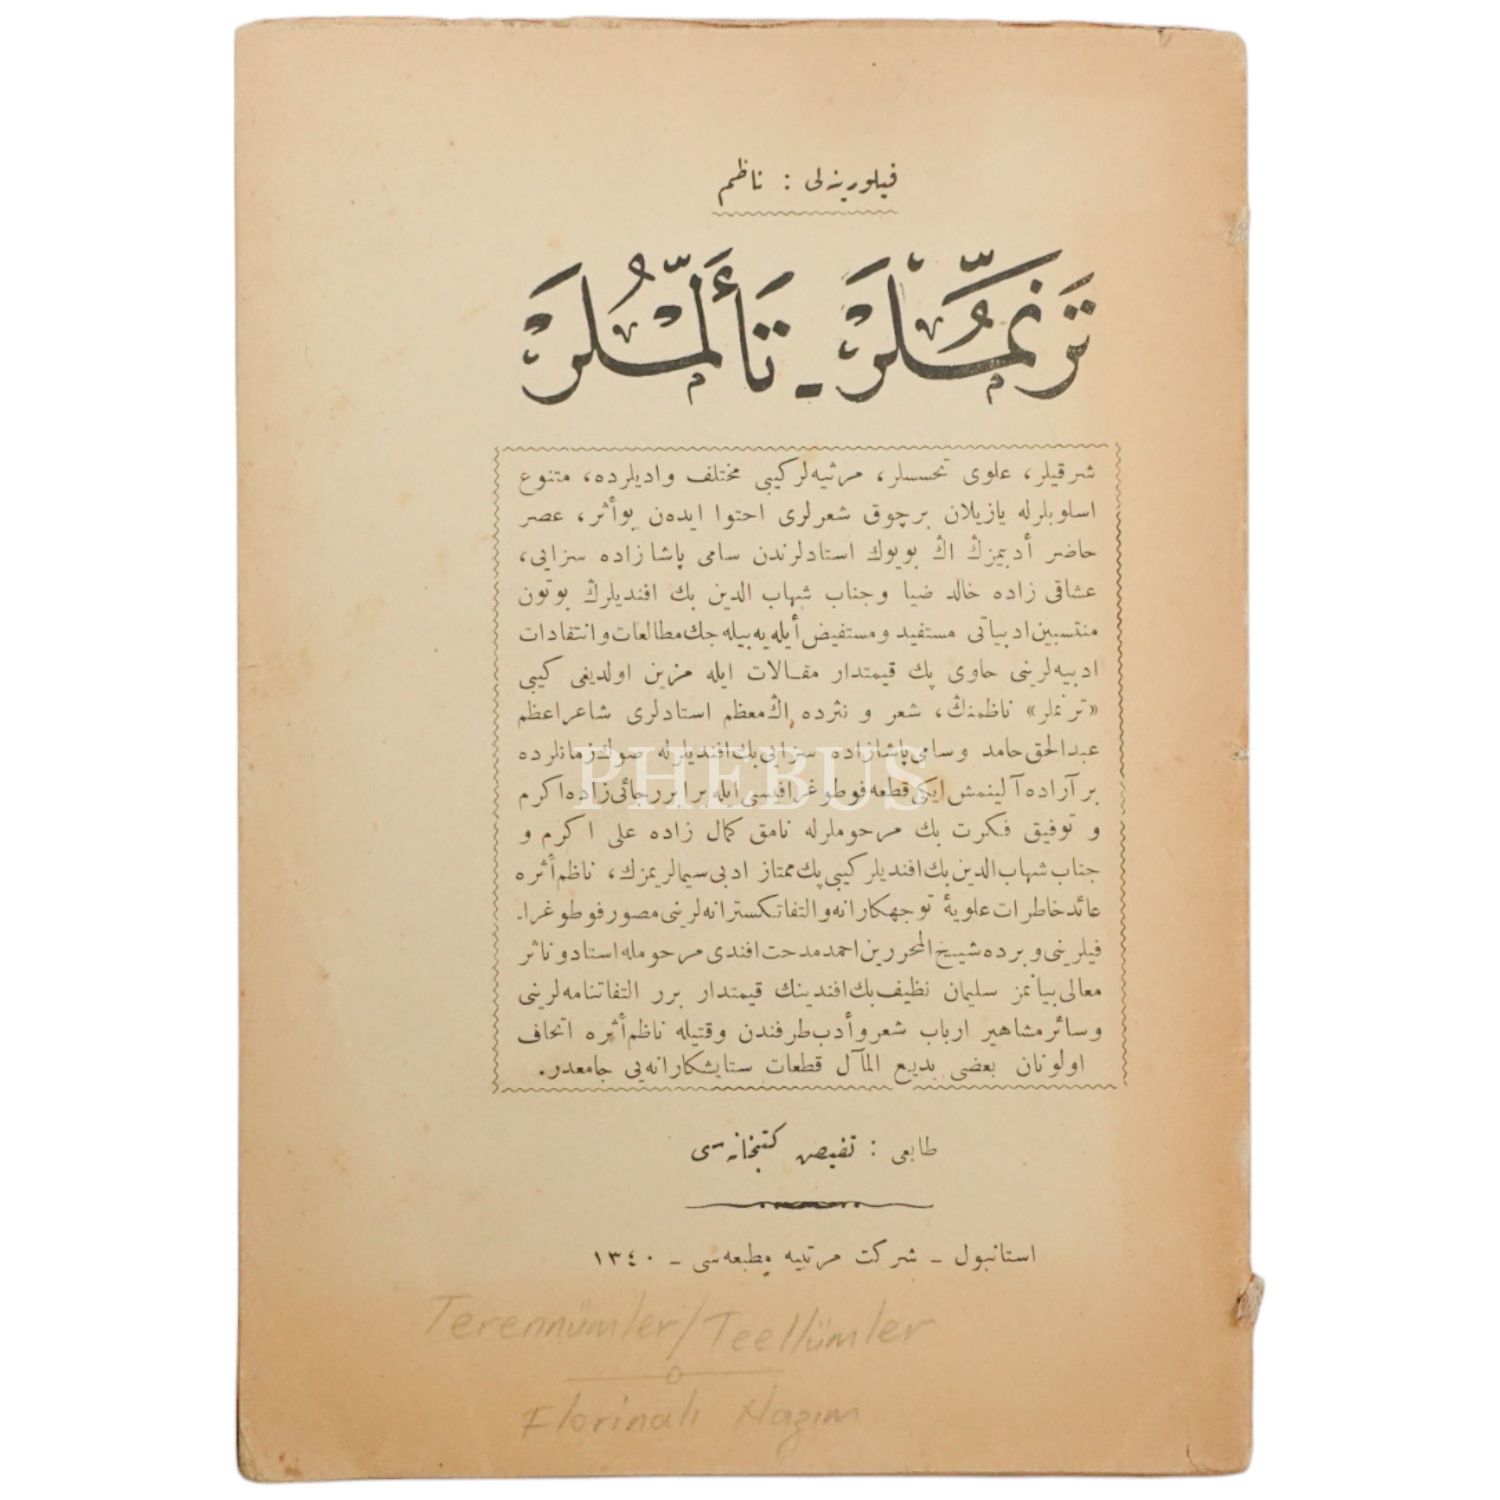 فيلورينه‌لى : ناظم
تَرَنُّملَر ـ تَأَلُّملَر
شرقيلر، علوى تحسسلر، مرثيه‌لركيبى مختلف واديلرده، متنوع
اسلوبلرله يازيلان برچوق شعرلرى احتوا ايده‌ن بوأثر، عصر
حاضر أدبيمزڭ اڭ بويوك استادلرندن سامى پاشازاده سزايى،
عشاقى زاده خالد ضيا وجناب شهاب الدين بك افنديلرڭ بوتون
منتسبين ادبياتى مستفيد ومستفيض أيله‌يه‌بيله‌جك مطالعات وانتقادات
ادبيه‌لرينى حاوى پك قيمتدار مقالات ايله مزين اولديغى كيبى
«ترنملر» ناظمنڭ، شعر و نثرده اڭ معظم استادلرى شاعراعظم
عبدالحق حامد وسامى پاشازاده سزايى بك افنديلرله صوڭ زمانلرده
بر آراده آلينمش ايكى قطعه فوطوغرافيسى ايله برابر رجائى زاده اكرم
و توفيق فكرت بك مرحوملرله نامق كمال زاده على اكرم و
جناب شهاب الدين بك افنديلر كيبى پك ممتاز ادبى سيمالريمزڭ، ناظم أثره
عائد خاطرات علويۀ توجهكارانه والتفاتكسترانه‌لرينى مصور فوطوغرا-
فيلرينى و برده شيخ المحررين احمد مدحت افندى مرحومله استاد و ناثر
معالى بيانمز سليمان نظيف بك افندينك قيمتدار برر التفاتنامه‌لرينى
وسائر مشاهير ارباب شعر وأدب طرفندن وقتيله ناظم أثره اتحاف
اولونان بعضى بديع المآل قطعات ستايشكارانه‌يى جامعدر.
طابعى : تفيض كتبخانه‌سى
استانبول ـ شركت مرتبيه مطبعه‌سى ـ ١٣٤٠
Terennümler/Teellümler
Florinalı Nazım
PHEBUS